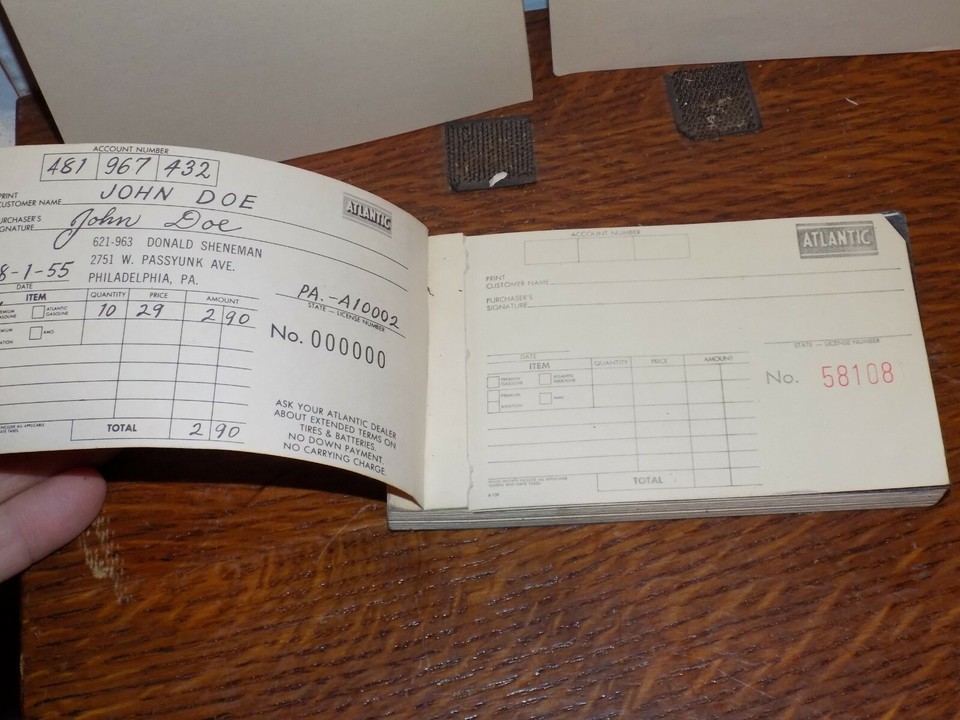 ACCOUNT NUMBER
481 967 432
PRINT
CUSTOMER NAME JOHN DOE
ATLANTIC
PURCHASER'S
SIGNATURE John Doe
621-963 DONALD SHENEMAN
2751 W. PASSYUNK AVE.
PHILADELPHIA, PA.
8-1-55
DATE
PA.-A10002
STATE — LICENSE NUMBER
ITEM QUANTITY PRICE AMOUNT
ATLANTIC
GASOLINE
10 29 2 90
AMO
No. 000000
ASK YOUR ATLANTIC DEALER
ABOUT EXTENDED TERMS ON
TIRES & BATTERIES.
NO DOWN PAYMENT.
NO CARRYING CHARGE.
TOTAL 2 90
ACCOUNT NUMBER
ATLANTIC
PRINT
CUSTOMER NAME
PURCHASER'S
SIGNATURE
STATE — LICENSE NUMBER
DATE
ITEM QUANTITY PRICE AMOUNT
PREMIUM
GASOLINE
ATLANTIC
GASOLINE
PREMIUM
AMO
No. 58108
TOTAL